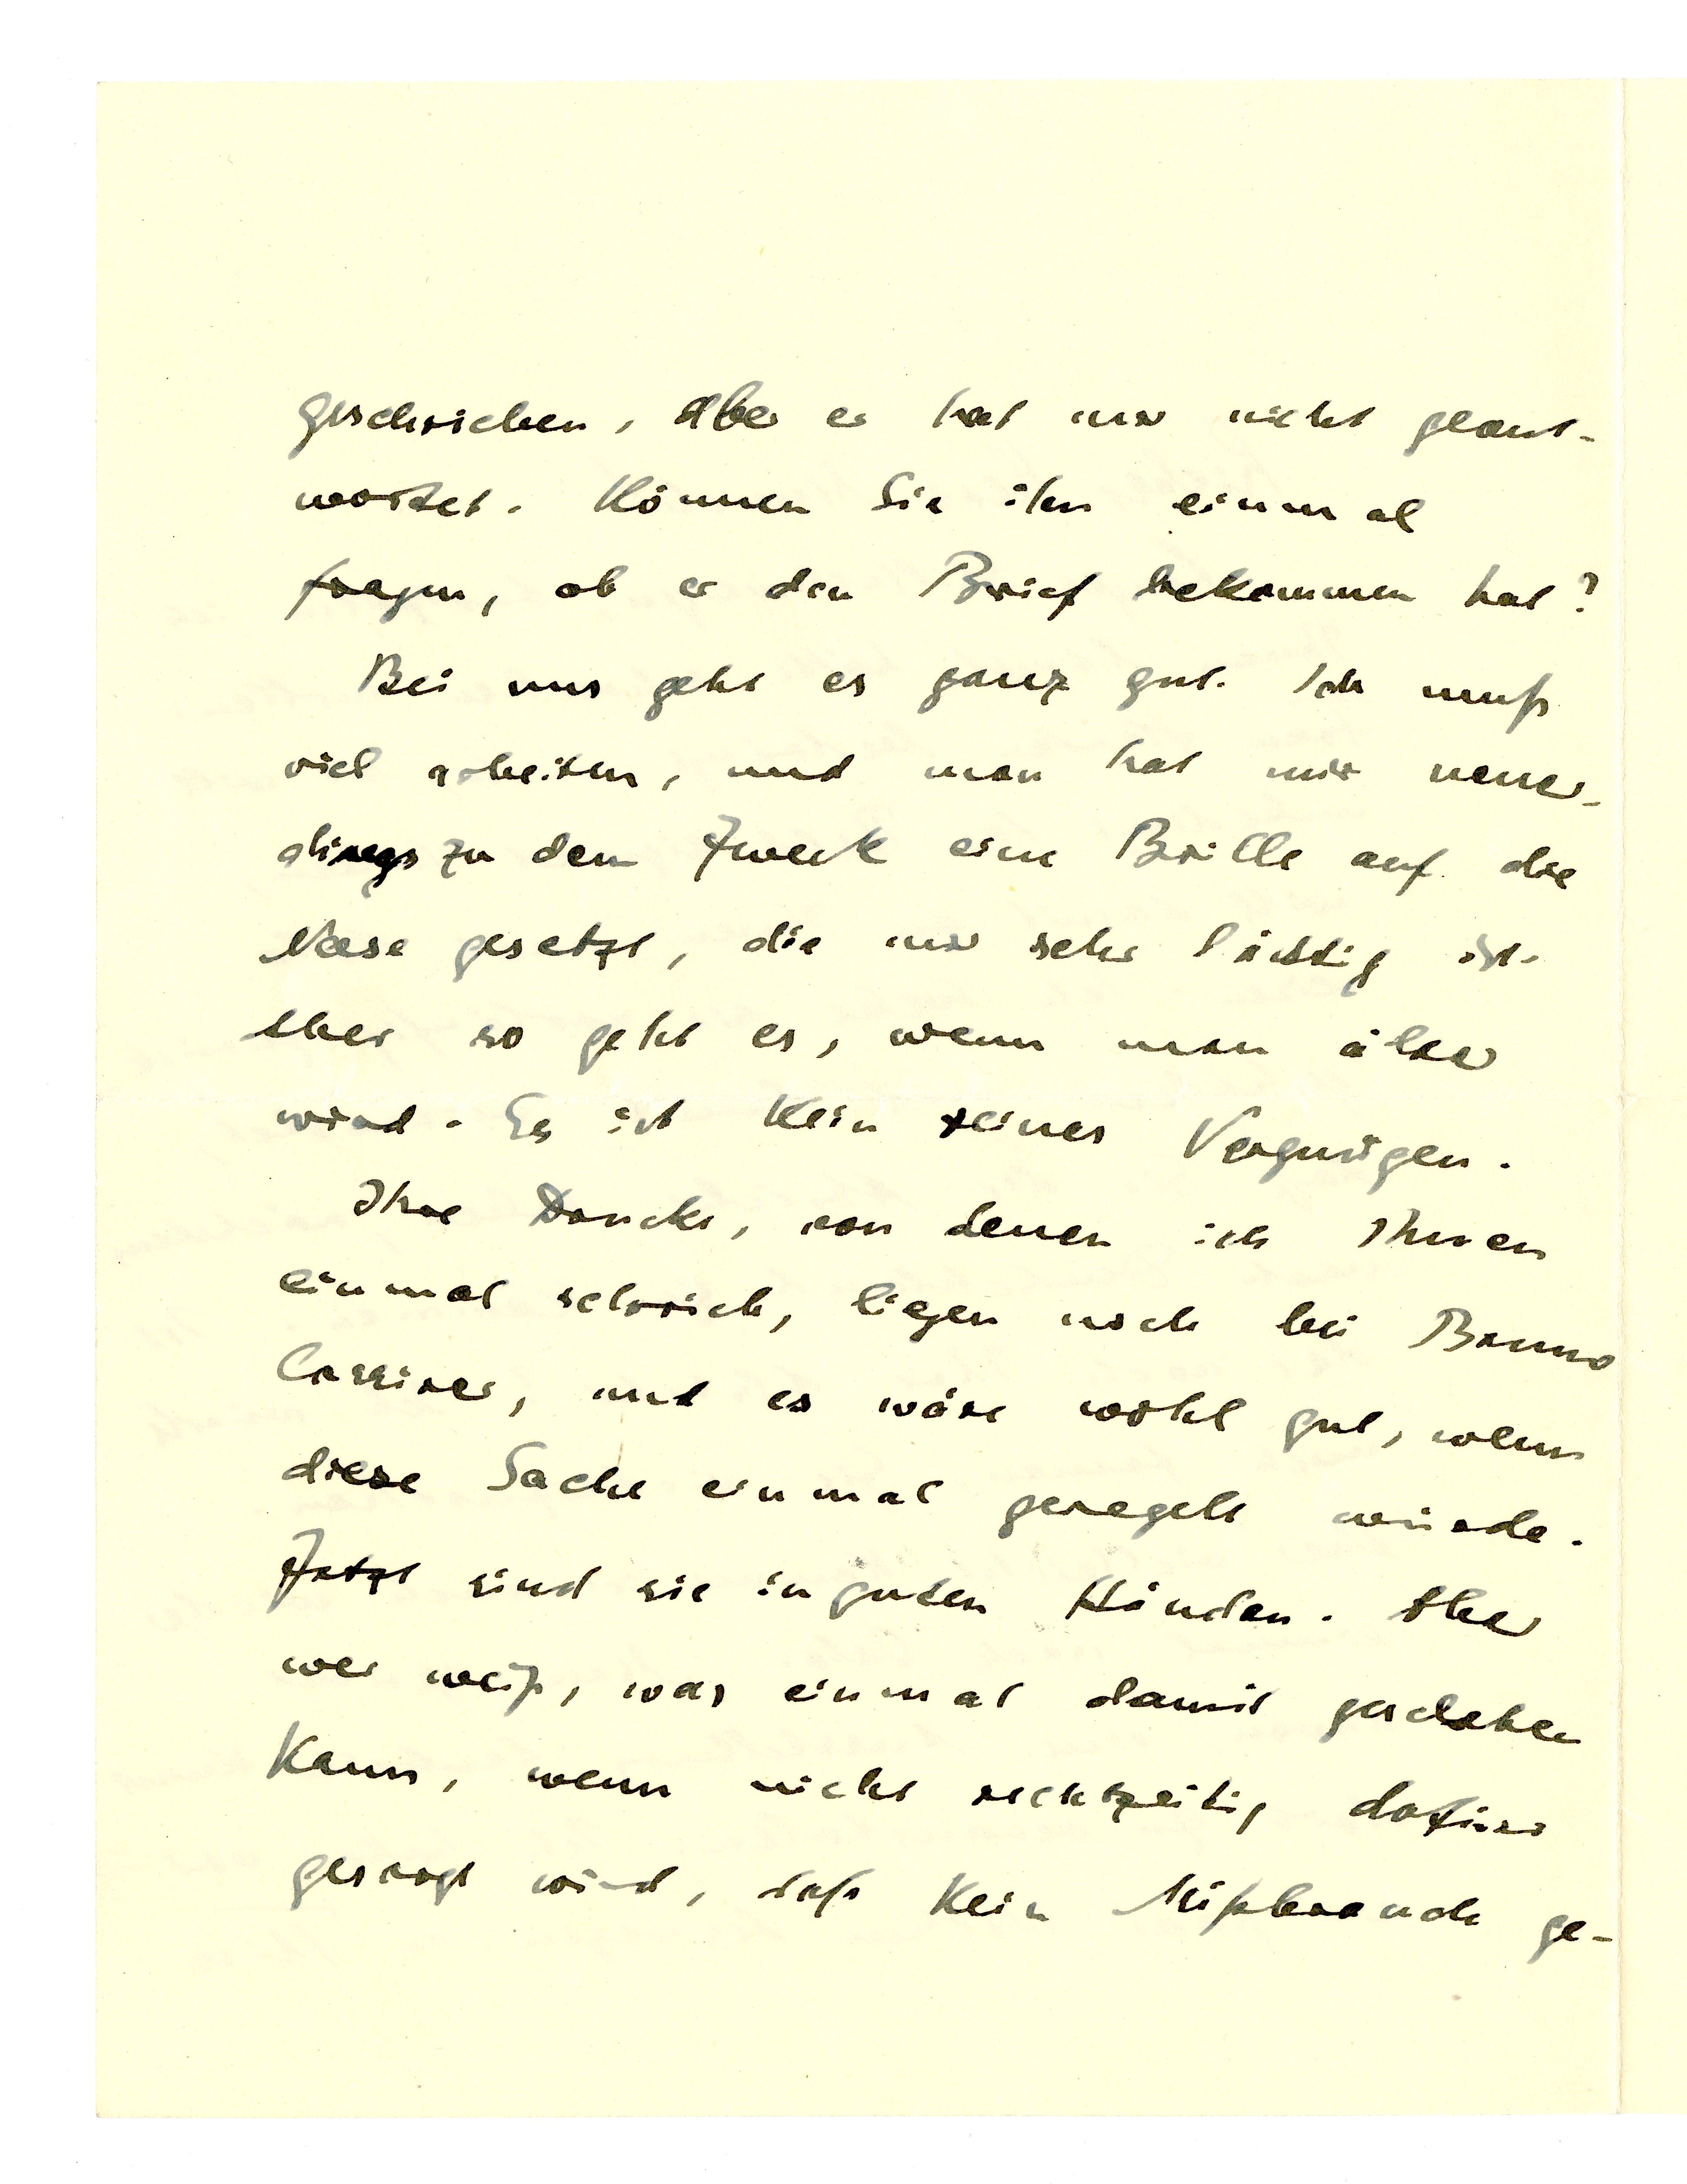 geschrieben, aber er hat mir nicht geant-
wortet. Können Sie ihn einmal
fragen, ob er den Brief bekommen hat?
Bei uns geht es ganz gut. Ich muß
viel arbeiten, und man hat mir neuer-
dings zu dem Zweck eine Brille auf die
Nase gesetzt, die mir sehr lästig ist.
Aber so geht es, wenn man älter
wird. Es ist kein reines Vergnügen.
Ihre Drucke, von denen ich Ihnen
einmal schrieb, liegen noch bei Bruno
Cassirer, und es wäre wohl gut, wenn
diese Sache einmal geregelt würde.
Jetzt sind sie in guten Händen. Aber
wer weiß, was einmal damit geschehen
kann, wenn nicht rechtzeitig dafür
gesorgt wird, daß kein Mißbrauch ge-